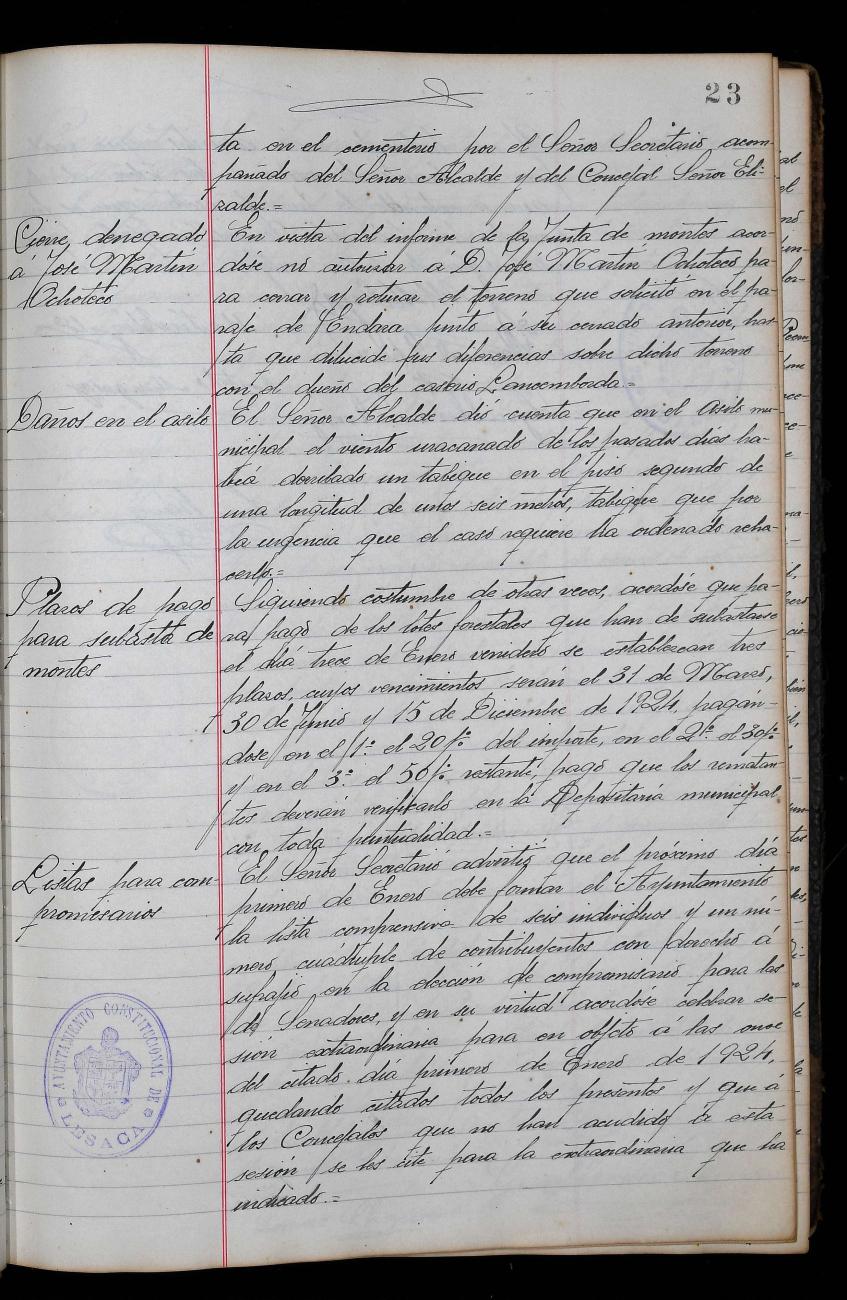 23
ta en el cementerio por el Señor Secretario, acom-
pañado del Señor Alcalde y del Concejal Señor Eli-
zalde.=
Cierre, denegado
á José Martín
Ochoteco
En vista del informe de la Junta de montes acor-
dóse no autorizar á D. José Martín Ochoteco pa-
ra cerrar y roturar el terreno que solicitó en el pa-
raje de Endara junto á su cerrado anterior, has-
ta que dilucide sus diferencias sobre dicho terreno
con el dueño del caserío Lancembada.=
Daños en el asilo
El Señor Alcalde dió cuenta que en el Asilo mu-
nicipal el viento uracanado de los pasados días ha-
biá derribado un tabique en el piso segundo de
una longitud de unos seis metros, tabique que por
la urgencia que el caso requiere ha ordenado reha-
cerlo.=
Plazos de pago
para subasta de
montes
Siguiendo costumbre de otras veces, acordóse que pa-
ra pago de los lotes forestales que han de subastarse
el diá trece de Enero venidero se establezcan tres
plazos, cuyos vencimientos serán el 31 de Marzo,
30 de Junio y 15 de Diciembre de 1924, pagán-
dose en el 1º el 20 p.º del importe, en el 2º el 30 p.º
y en el 3º el 50 p.º restante, pago que los rematan-
tes deverán verificarlo en la Depositaría municipal
con toda puntualidad.=
Listas para com-
promisarios
El Señor Secretario advirtió que el próximo diá
primero de Enero debe formar el Ayuntamiento
la lista comprensiva de seis individuos y un nú-
mero cuádruple de contribuyentes con derecho á
sufrajio en la elección de compromisario para las
de Senadores, y en su virtud acordóse celebrar se-
sión extraordinaria para en objeto á las once
del citado diá primero de Enero de 1924,
quedando citados todos los presentes y que á
los Concejales que no han acudido á esta
sesión se les cite para la extraordinaria que ha
indicado.=
AYUNTAMIENTO CONSTITUCIONAL DE
LESACA